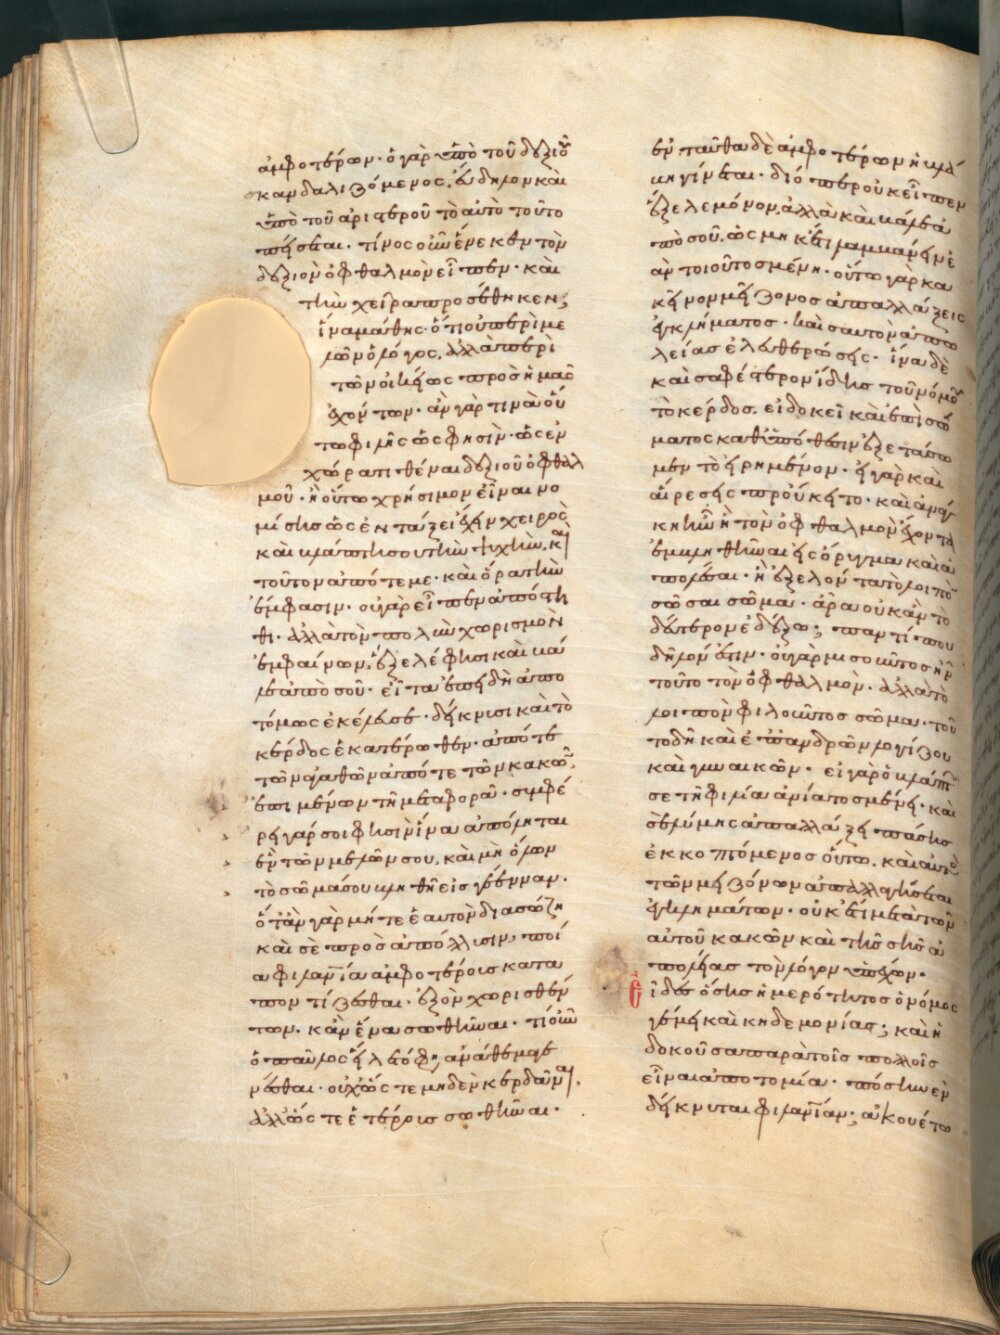 ἀμφοτέρων· ὁ γὰρ ὑπὸ τοῦ δεξιοῦ
σκανδαλιζόμενος, εὔδηλον καὶ
ὑπὸ τοῦ ἀριστεροῦ τὸ αὐτὸ τοῦτο
πείσεται· τίνος οὖν ἕνεκεν τὸν
δεξιὸν ὀφθαλμὸν εἶπεν· καὶ
τὴν χεῖρα προσέθηκεν;
ἵνα μάθῃς· ὅτι οὐ περὶ με
λῶν ὁ λόγος, ἀλλὰ περὶ
τῶν οἰκείως πρὸς ἡμᾶς
ἐχόντων· ἂν γὰρ τινὰ οὕ
τω φιλῇς ὥς φησιν· ὡς ἐν
χώρα τιθέναι δεξιοῦ ὀφθαλ
μοῦ· ἢ οὕτω χρήσιμον εἶναι νο
μίσῃς ὡς ἐν τάξει ἔχειν χειρὸς
καὶ βλάπτῃ σου τὴν ψυχὴν, καὶ
τοῦτον ἀπότεμε· καὶ ὅρα τὴν
ἔμφασιν· οὐ γὰρ εἶπεν ἀπόστη
θι· ἀλλὰ τὸν πολὺν χωρισμὸν
ἐμφαίνων, ἔξελέ φησι καὶ βά
λε ἀπὸ σοῦ· εἶτα ἐπειδὴ ἀπο
τόμως ἐκέλευσε· δείκνυσι καὶ τὸ
κέρδος ἑκατέρωθεν· ἀπό τε
τῶν ἀγαθῶν ἀπό τε τῶν κακῶν,
ἐπιμένων τῇ μεταφορᾷ· συμφέ
ρει γάρ σοι φησὶν ἵνα ἀπόληται
ἓν τῶν μελῶν σου, καὶ μὴ ὅλον
τὸ σῶμά σου βληθῇ εἰς γέενναν·
ὅτἂν γὰρ μήτε ἑαυτὸν διασώζῃ
καὶ σὲ προσαπόλλυσιν, ποί
α φιλανία ἀμφοτέροις κατα
ποντίζεσθαι· ἐξὸν χωρισθέν
των· κἂν ἕνα σωθῆναι· τί οὖν
ὁ παῦλος εἵλετό φησι, ἀνάθεμα γε
νέσθαι· οὐχ ὥς τε μηδὲν κερδᾶναι,
ἀλλ' ὥς τε ἑτέρους σωθῆναι·
ἐν ταῦθα δὲ ἀμφοτέρων ἡ βλά
βη γίνεται· διό περ οὐκ εἶπεν
ἔξελε μόνον, ἀλλὰ καὶ βάλε ἀ
πὸ σοῦ, ὡς μηκέτι λαμβάνειν ἐ
ὰν τοιοῦτος μένῃ· οὕτω γὰρ κα
κεῖνον μείζονος ἀπαλλάξεις
ἐγκλήματος· καὶ σαυτὸν ἀπω
λείας ἐλευθερώσεις· ἵνα δὲ
καὶ σαφέστερον ἴδῃς τοῦ νόμου
τὸ κέρδος, εἰ δοκεῖ καὶ ἐπὶ σώ
ματος καθ' ὑπόθεσιν ἐξετάσω
μεν τὸ εἰρημένον· εἰ γὰρ καὶ
αἵρεσις προὔκειτο· καὶ ἀνάγ
κη ἦν ἢ τὸν ὀφθαλμὸν ἔχοντα
ἐμβληθῆναι εἰς ὄρυγμα καὶ ἀ
πολέσθαι· ἢ ἐξελόντα τὸ λοιπὸν
σῶσαι σῶμα· ἆρα οὐκ ἂν τὸ
δεύτερον ἐδέξω; παντί που
δῆλόν ἐστιν· οὐ γὰρ μισοῦντος ἦν
τοῦτο τὸν ὀφθαλμὸν· ἀλλὰ τὸ
λοιπὸν φιλοῦντος σῶμα· τοῦ
το δὴ καὶ ἐπ' ἀνδρῶν λογίζου
καὶ γυναικῶν· εἰ γὰρ ὁ βλάπτων
σε τῇ φιλία ἀνίατος μένει· καὶ
σὲ λύμης ἀπαλλάξει πάσης
ἐκκοπτόμενος οὕτω, καὶ αὐτὸς
τῶν μειζόνων ἀπαλλαγήσεται
ἐγκλημάτων· οὐκέτι μετὰ τῶν
αὐτοῦ κακῶν καὶ τῆς σῆς ἀ
πωλείας τὸν λόγον ὑπέχων·
ἴδες ὅσης ἡμερότητος ὁ νόμος
γέμει καὶ κηδεμονίας; καὶ ἡ
δοκοῦσα παρὰ τοῖς πολλοῖς
εἶναι ἀποτομία· πόσην ἐν
δείκνυται φιλανίαν; ἀκουέτω